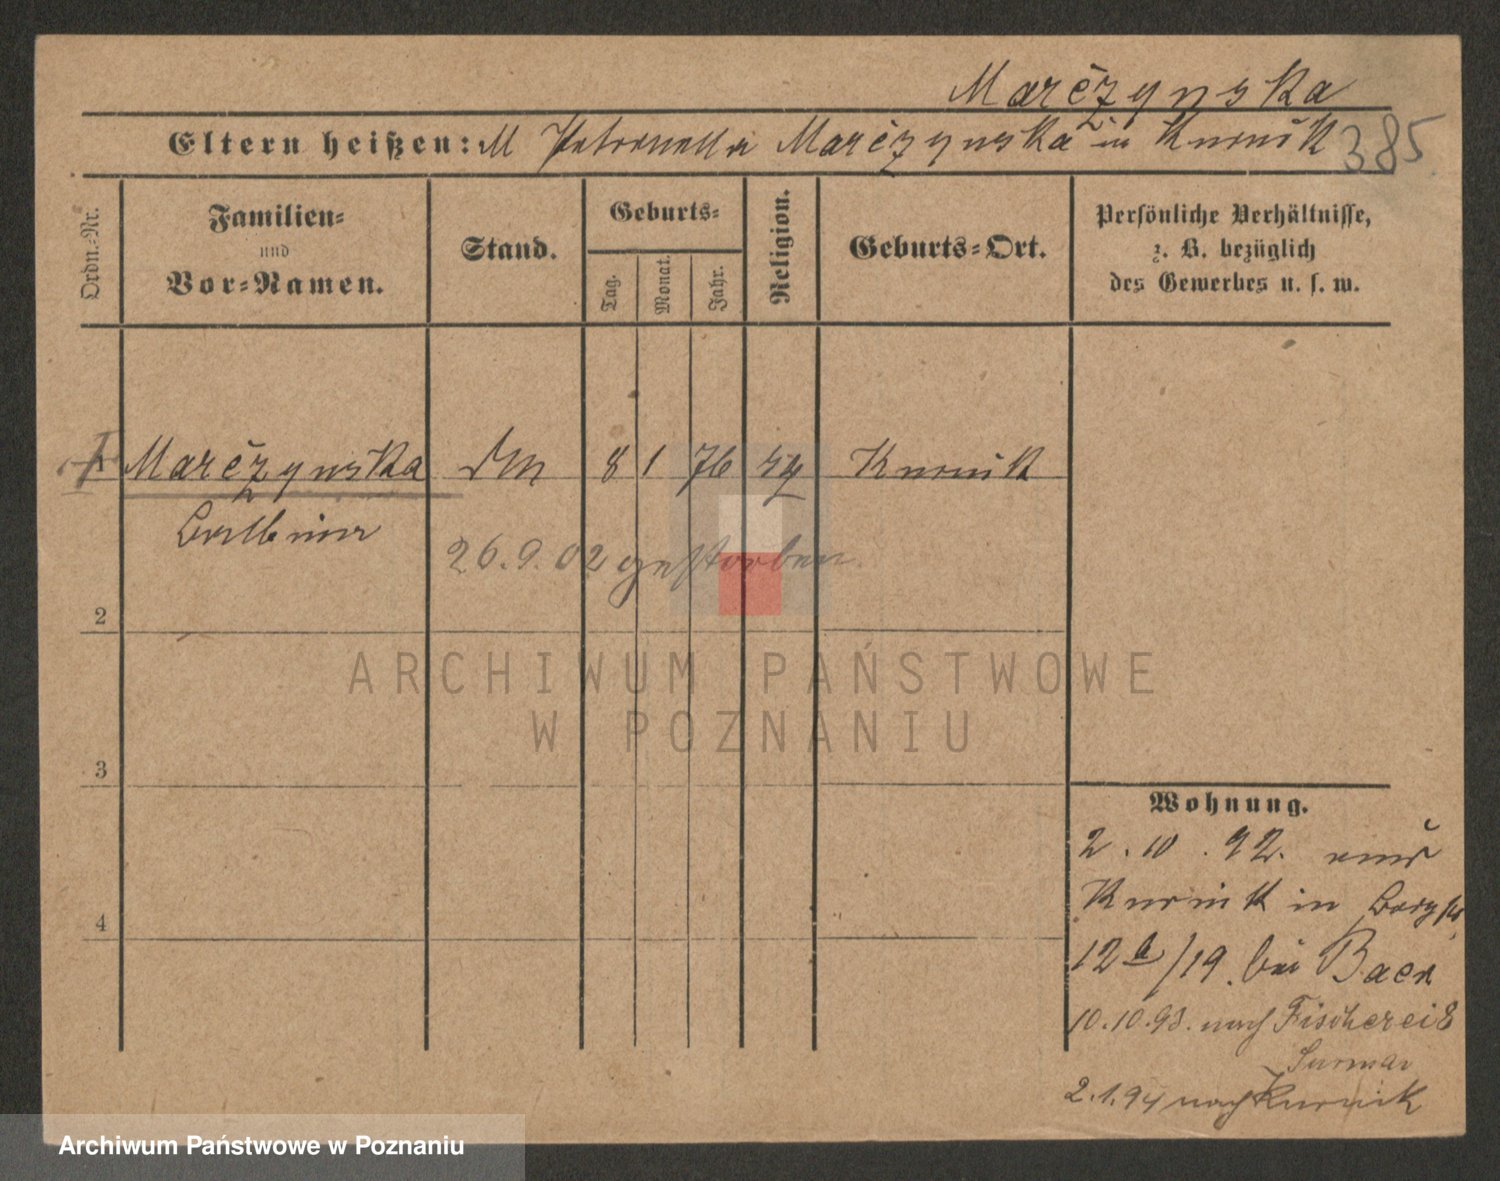 Marćzynska
Eltern heißen: M Petronella Marćzynska in Kurnik 385
Ordn.-Nr.
Familien-
und
Vor-Namen.
Stand.
Geburts-
Tag.
Monat.
Jahr.
Religion.
Geburts-Ort.
Persönliche Verhältnisse,
z. B. bezüglich
des Gewerbes u. s. w.
1 Marćzynska DM 8 1 76 Kurnik
Balbina
26.9.02 gestorben
2
ARCHIWUM PAŃSTWOWE
W POZNANIU
3
Wohnung.
2.10.92. aus
Kurnik in
4
12a/19. bei Baer
10.10.93. nach Fischerei 8
2.1.94 nach Kurnik
Archiwum Państwowe w Poznaniu